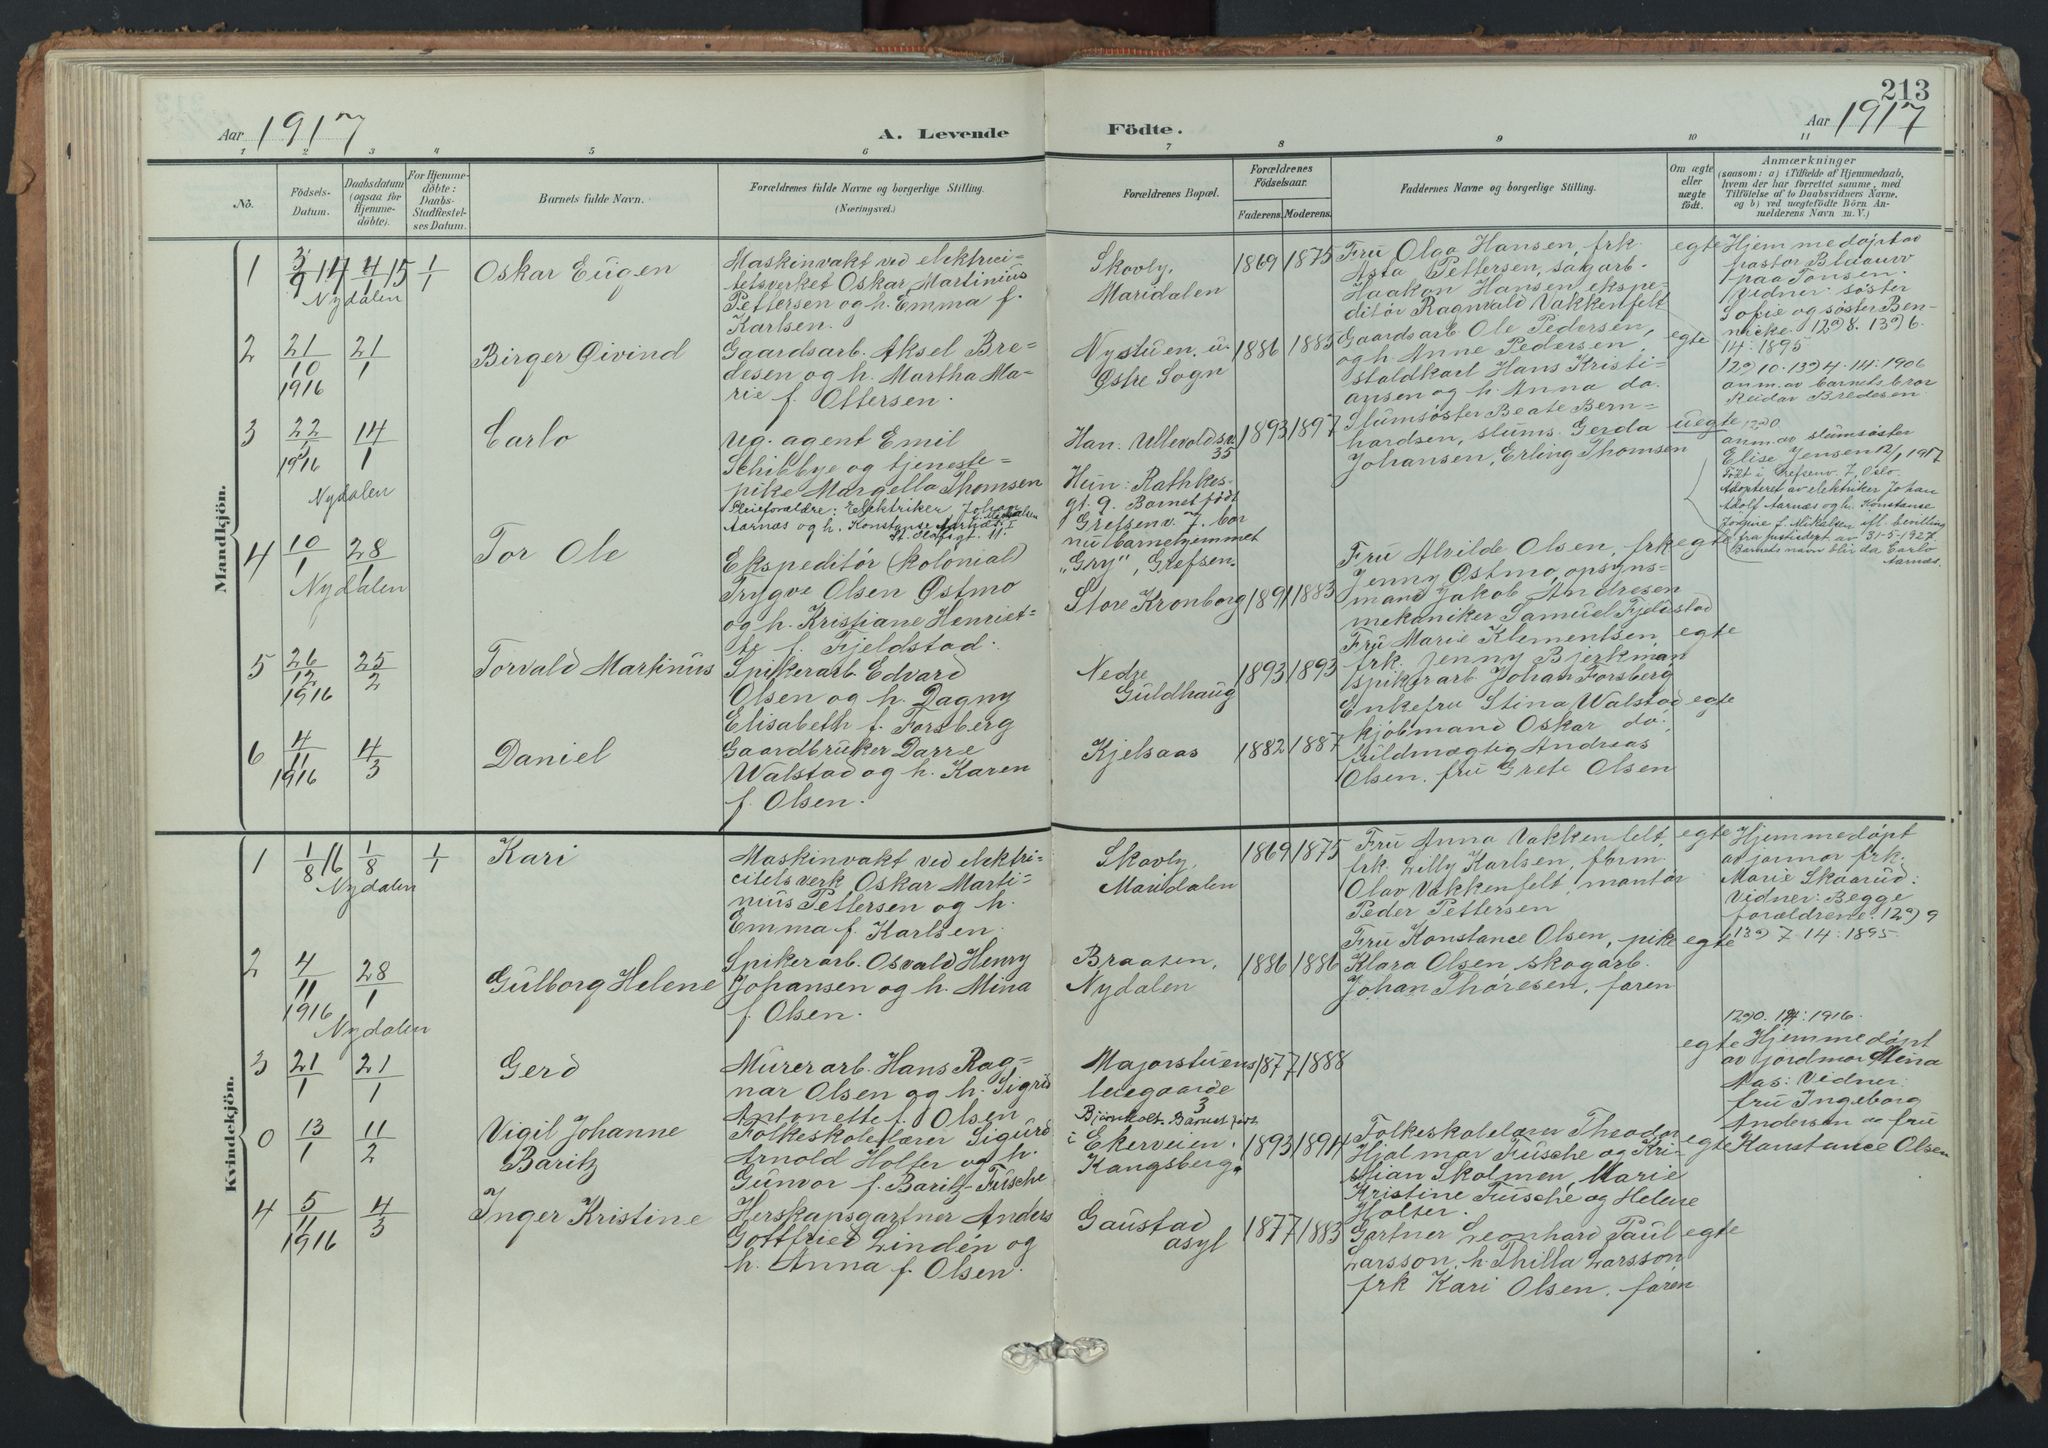 213
Aar 1917
A. Levende Födte.
Aar 1917
1 2 3 4 5 6 7 8 9 10 11
No.
Födsels-
Datum.
Daabsdatum
(ogsaa for
Hjemme-
døbte).
For Hjemme-
døbte:
Daabs-
Stadfæstel-
ses Datum.
Barnets fulde Navn.
Forældrenes fulde Navne og borgerlige Stilling.
(Næringsvei.)
Forældrenes Bopæl.
Forældrenes
Födselsaar.
Faderens. Moderens.
Faddernes Navne og borgerlige Stilling.
Om ægte
eller
uægte
født.
Anmærkninger
(saasom: a) i Tilfælde af Hjemmedaab,
hvem der har forrettet samme, med
Tilföielse af to Daabsvidners Navne,
og b) ved uægtefödte Börn An-
melderens Navn m. V.)
Mandkjön.
1
3/9 14
4/1 15
1/1
Nydalen
Oskar Eugen
Maskinvakt ved elektrici-
tetsverket Oskar Martinius
Pettersen og h. Emma f.
Karlsen.
Skovly,
Maridalen
1869 1875
Fru Olga Hansen, frk.
Asta Pettersen, sagarb.
Haakon Hansen ekspe-
ditør Ragnvald Vakkenfelt
egte
Hjemmedøpt av
pastor Blaauw
paa Tonsen.
Vidner: søster
Sofie og søster Ben-
nicke. 12a) 8. 13a) 6.
14: 1895
2
21/10
1916
21/1
Birger Øivind
Gaardsarb. Aksel Bre-
desen og h. Martha Ma-
rie f. Ottersen.
Nystuen, u.
Østre Sogn
1886 1885
Gaardsarb. Ole Pedersen,
og h. Anne Pedersen,
staldkarl Hans Kristi-
ansen og h. Anna do.
egte
12a) 10. 13a) 4. 14: 1906
anm. av barnets bror
Reidar Bredesen
3
1916
14/1
Nydalen
Carlo
Ug. agent Emil
Schibbye og tjeneste-
pike Margella Thomsen
Pleieforældre: Elektriker Johan
Aarnæs og h. Konstanse
Han: Ullevoldsv.
35
Hun: Rathkes-
gt. 9. Barnet født
Grefsenv. 7. bor
nu barnehjemmet
"Gry", Grefsen.
1893 1897
Slumsøster Beate Bern-
hardsen, slums. Gerda
Johansen, Erling Thomsen
uegte
anm. av slumsøster
Elise Jensen 12/1 1917
Født i Grefsenv. 7, Oslo.
Adopteret av elektriker Johan
Adolf Aarnæs og h. Konstanse
Jongine f. Mikalsen efl. bevilling
fra justisdept av 31-5-1927
Barnets navn blir da Carlo
Aarnæs.
4
10/1
28/1
Nydalen
Tor Ole
Ekspeditør (kolonial)
Trygve Olsen Østmo
og h. Kristiane Henriet-
te f. Fjeldstad.
Store Kronborg
1891 1883
Fru Alvilde Olsen, frk
Jenny Østmo, opsyns-
mand Jakob Andresen
mekaniker Samuel Fjeldstad
egte
5
26/12
1916
25/2
Torvald Martinus
Spikerarb. Edvard
Olsen og h. Dagny
Elisabeth f. Forsberg
Nedre
Guldhaug
1893 1893
Fru Marie Klementsen,
frk. Jenny Bjerkman,
spikerarb. Johan Forsberg
egte
6
4/11
1916
4/3
Daniel
Gaardbruker Darre
Walstad og h. Karen
f. Olsen.
Kjelsaas
1882 1887
Enkefru Stina Walstad
kjøbmand Oskar do.,
fuldmægtig Andreas
Olsen, fru Grete Olsen
egte
Kvindekjön.
1
1/8 16
1/8
1/1
Nydalen
Kari
Maskinvakt ved elektri-
citetsverk Oskar Marti-
nius Pettersen og h.
Emma f. Karlsen.
Skovly,
Maridalen
1869 1875
Fru Anna Vakkenfelt,
frk. Lilly Karlsen, form.
Olav Vakkenfelt, montør
Peder Pettersen
egte
Hjemmedøpt
av jormor frk.
Marie Skaarud:
Vidner: Begge
forældrene. 12a) 9
13a) 7. 14: 1895.
2
4/11
1916
28/1
Nydalen
Gulborg Helene
Spikerarb. Osvald Henry
Johansen og h. Mina
f. Olsen.
Braaten,
Nydalen
1886 1886
Fru Konstance Olsen, pike
Klara Olsen skogarb.
Johan Thoresen, faren
egte
3
21/1
21/1
Gerd
Murerarb. Hans Rag-
nar Olsen og h. Sigrid
Antonette f. Olsen
Majorstuens
leiegaarde
3
1877 1888
egte
14: 1916.
Hjemmedøpt
av jordmor Mina
Aas: Vidner:
fru Ingeborg
Andersen og fru
Konstance Olsen
0
13/1
11/2
Vigil Johanne
Baritz
Folkeskolelærer Sigurd
Arnold Holter og h.
Gunvor f. Baritz-Fusche
Bjørnholt. Barnet født
i Ekerveien,
Kongsberg.
1893 1894
Folkeskolelærer Theodor
Hjalmar Fusche og Kri-
stian Skolmen, Marie
Kristine Fusche og Helene
Holter.
egte
4
5/11
1916
4/3
Inger Kristine
Herskapsgartner Anders
Gottfried Lindén og
h. Anna f. Olsen.
Gaustad
asyl
1877 1883
Gartner Leonhard Paul
Larsson, h. Thilla Larsson,
frk Kari Olsen, faren
egte